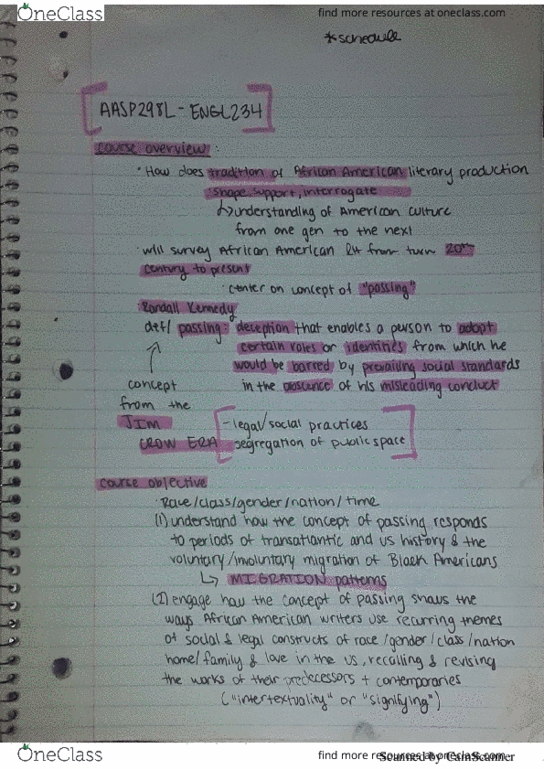 OneClass
find more resources at oneclass.com
*schedule
AASP298L - ENGL234
course overview:
· How does tradition of African American literary production
shape, support, interrogate
↳ understanding of American culture
from one gen to the next
· will survey African American lit from turn 20th
century to present
· center on concept of "passing"
Randall Kennedy
def/ passing: deception that enables a person to adopt
certain roles or identities from which he
would be barred by prevailing social standards
in the of his misleading conduct
concept
from the
JIM
CROW ERA
- legal/social practices
segregation of public space
course objective
· Race/class/gender/nation/time
(1) understand how the concept of passing responds
to periods of transatlantic and us history & the
voluntary/involuntary migration of Black Americans
↳ MIGRATION patterns
(2) engage how the concept of passing shows the
ways African American writers use recurring themes
of social & legal constructs of race/gender/class/nation
home/family & love in the us, recalling & revising
the works of their predecessors + contemporaries
("intertextuality" or "signifying")
OneClass
find more resources at oneclass.com
Scanned by CamScanner